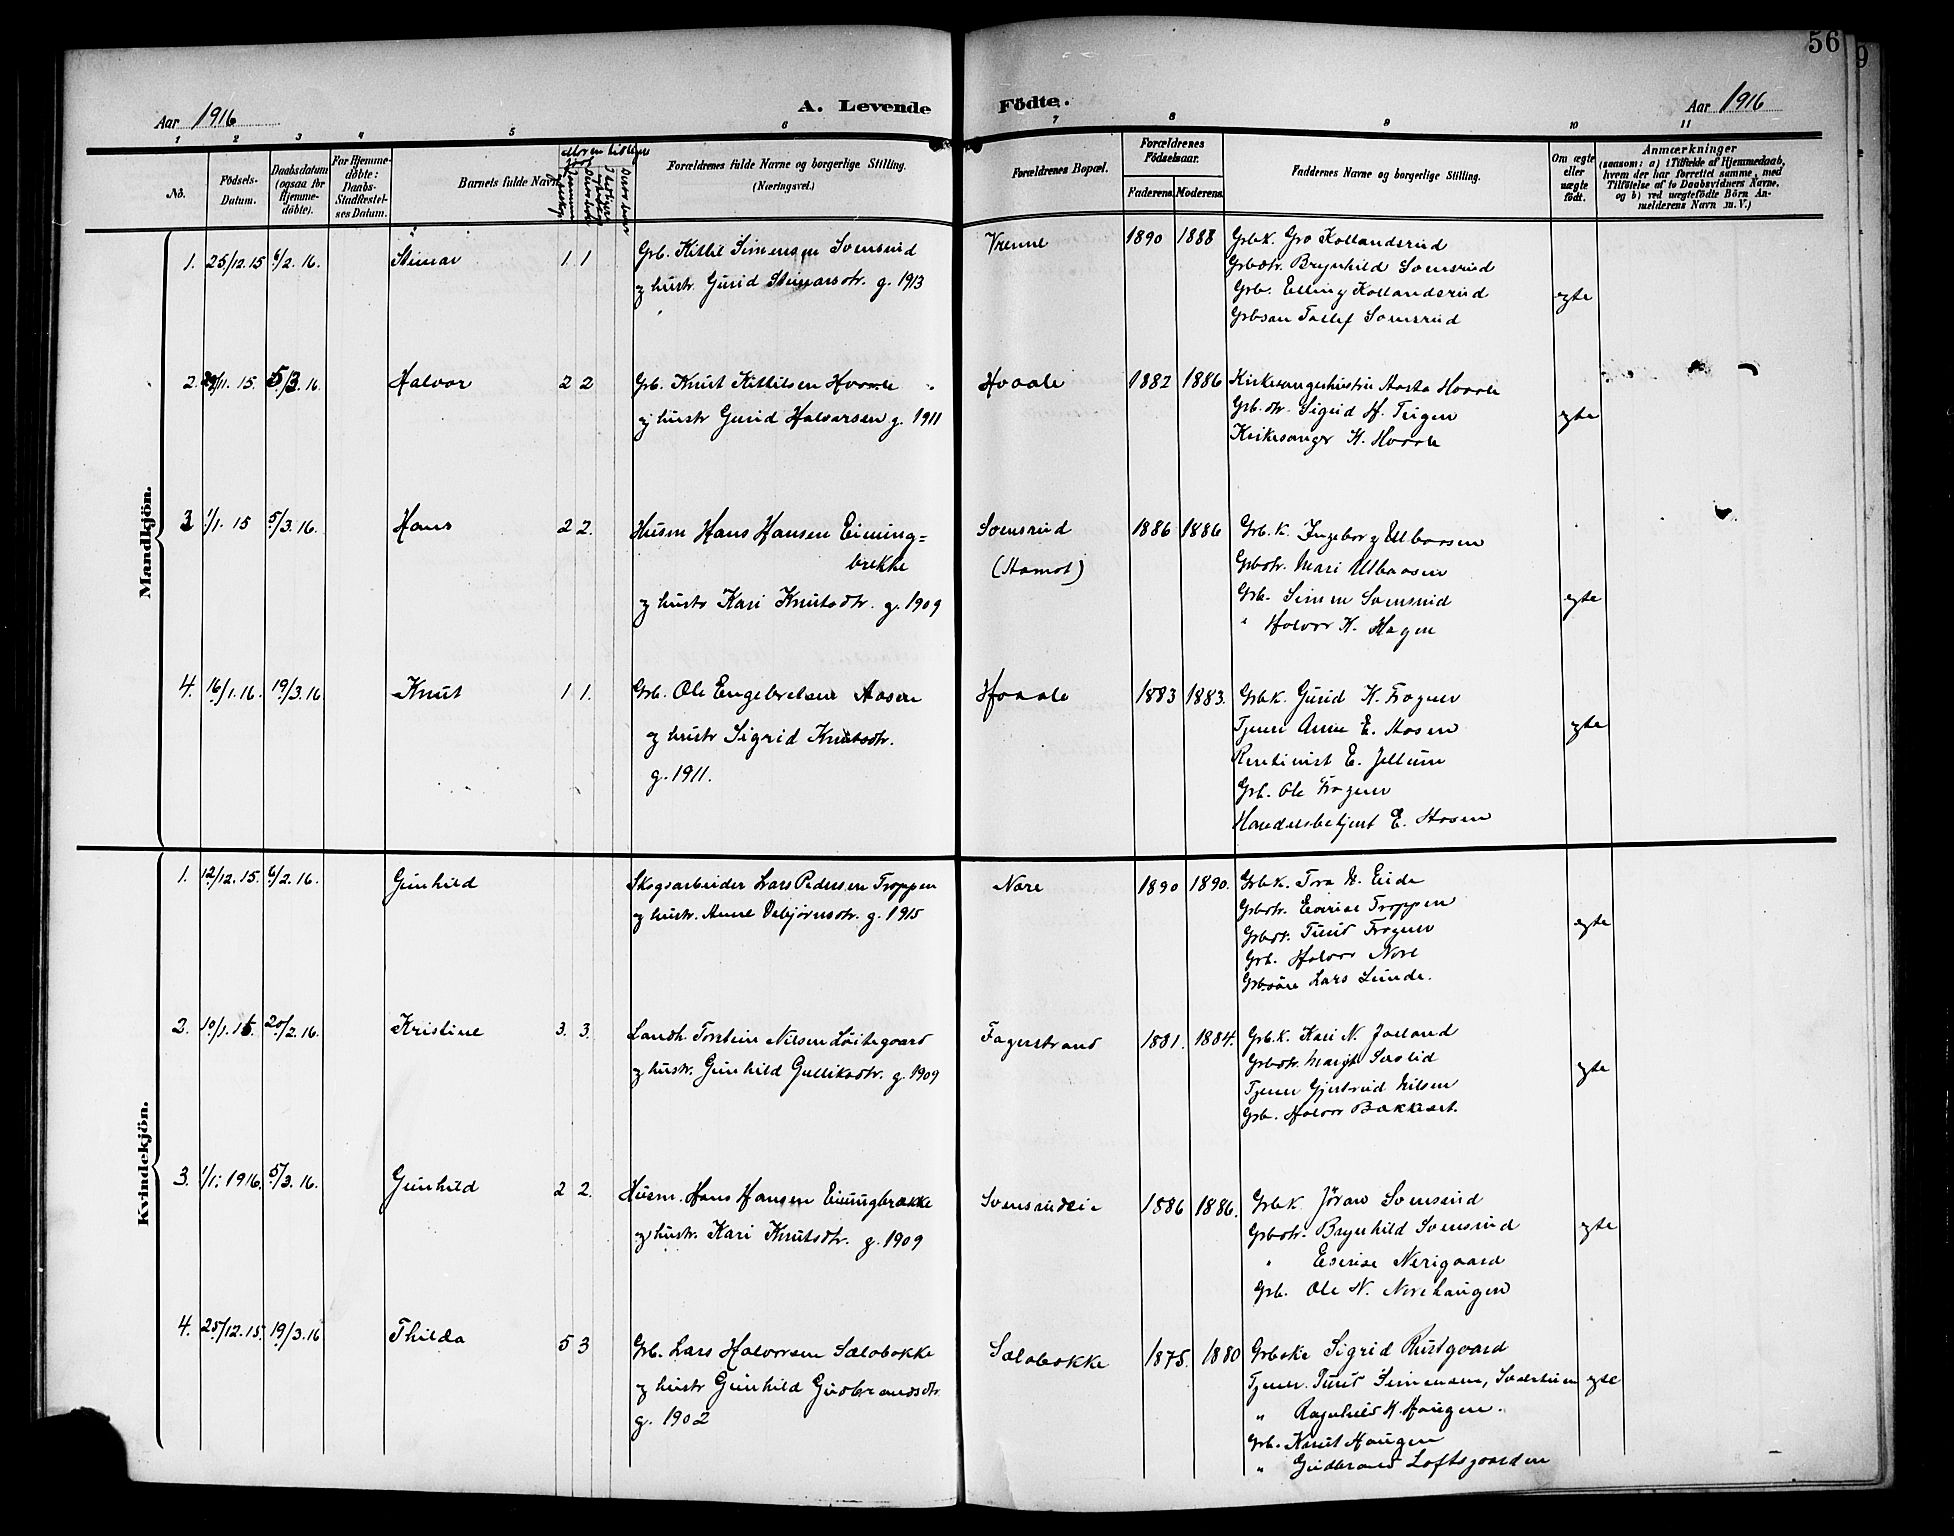 56
9
Aar 1916
A. Levende
Födte.
Aar 1916
1 2 3 4 5 6 7 8 9 10 11
No.
Födsels-
Datum.
Daabsdatum
(ogsaa for
Hjemme-
döbte).
For Hjemme-
döbte:
Daabs-
Stadfæstel-
ses Datum.
Barnets fulde Navn
Forældrenes fulde Navne og borgerlige Stilling.
(Næringsvei.)
Forældrenes Bopæl.
Forældrenes
Födselsaar.
Faderens. Moderens.
Faddernes Navne og borgerlige Stilling.
Om ægte
eller
uægte
født.
Anmærkninger
(saasom: a) i Tilfælde af Hjemmedaab,
hvem der har forrettet samme, med
Tilföielse af to Daabsvidners Navne,
og b) ved uægtefödte Börn An-
melderens Navn m. V.)
Mandkjön.
1. 25/12.15 6/2. 16. Steinar 1 1
Grb. Kittil Simensen Soensrud
og hustr. Gunild Steinarsdtr. g. 1913
Vrenne 1890 1888
Grbk. Gro Kollandsrud
Grbdtr. Brynhild Soensrud
Grb. Elling Kollandsrud
Grbsøn Tollef Soensrud
egte
2. /11. 15. 5/3. 16. Halvor 2 2
Grb. Knut Kittilsen Hvaale
og hustr Gunild Halvorsen g. 1911
Hvaale 1882 1886
Kirkesangerhustru Aasta Hvaale
Grb. dtr. Sigrid H. Teigen
Kirkesanger K. Hvaale
egte
3 1/1. 15 5/3. 16. Hans 2 2.
Husm Hans Hansen Eiening=
brekke
og hustr Kari Knutsdtr. g. 1909
Soensrud
(Aamot)
1886 1886
Grb. k. Ingeborg Ulbaasen
Grbdtr. Mari Ulbaasen
Grb. Simen Soensrud
" Halvor K. Hagen
egte
4. 16/1. 16. 19/3. 16 Knut 1 1.
Grb. Ole Engebretsen Aasen
og hustr Sigrid Knutsdtr.
g. 1911.
Hvaale 1883 1883.
Grbk. Gunild K. Frogner
Tjener Anne E. Aasen
E. Jellum
Grb. Ole Frogner
Handelsbetjent E. Aasen
egte
Kvindekjön.
1. 12/12. 15. 6/2. 16. Gunhild
Skogsarbeider Lars Pedersen Troppen
og hustr. Anne Asbjørnsdtr. g. 1915
Nore 1890 1890.
Grbk. Tora N. Eide
Grbdtr. Troppen
Grbdt. Turid Frogner
Grb. Halvor Nore
Grbsøn Lars Lunde.
egte
2. 10/1. 16. 20/2. 16. Kristine 3. 3.
Landh. Torstein Nilsen Løitegaard
og hustr. Gunhild Gulliksdtr. g. 1909
Fagerstrand 1881. 1884.
Grb. k. Kari N. Jøtland
Grbdtr. Margit Søslid
Tjener Gjertrud Nilsen
Grb. Halvor Bakkset.
egte
3. 1/1. 1916. 5/3. 16. Gunhild 2 2.
Husm. Hans Hansen Eieningbrække
og hustr. Kari Knutsdtr. g. 1909
Soensrudeie 1886 1886.
Grbk. Jöran Soensrud
Grbdtr. Brynhild Soensrud
" Nerigaard
Grb. Ole N. Norehaugen
egte
4. 25/12. 15. 19/3. 16 Thilda 5 3
Grb. Lars Halvorsen Sælabakke
og hustr Gunhild Gudbrandsdtr.
g. 1902
Sælabakke 1875. 1880
Grbske Sigrid Rustgaard
Tjener. Turid Simensen,
" Ragnhild H. Haugen.
Grb. Knut Haugen
" Gudbrand Loftsgaarden
egte